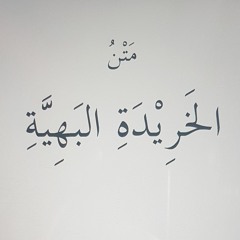 مَتْنُ
الخَرِيْدَةِ البَهِيَّةِ